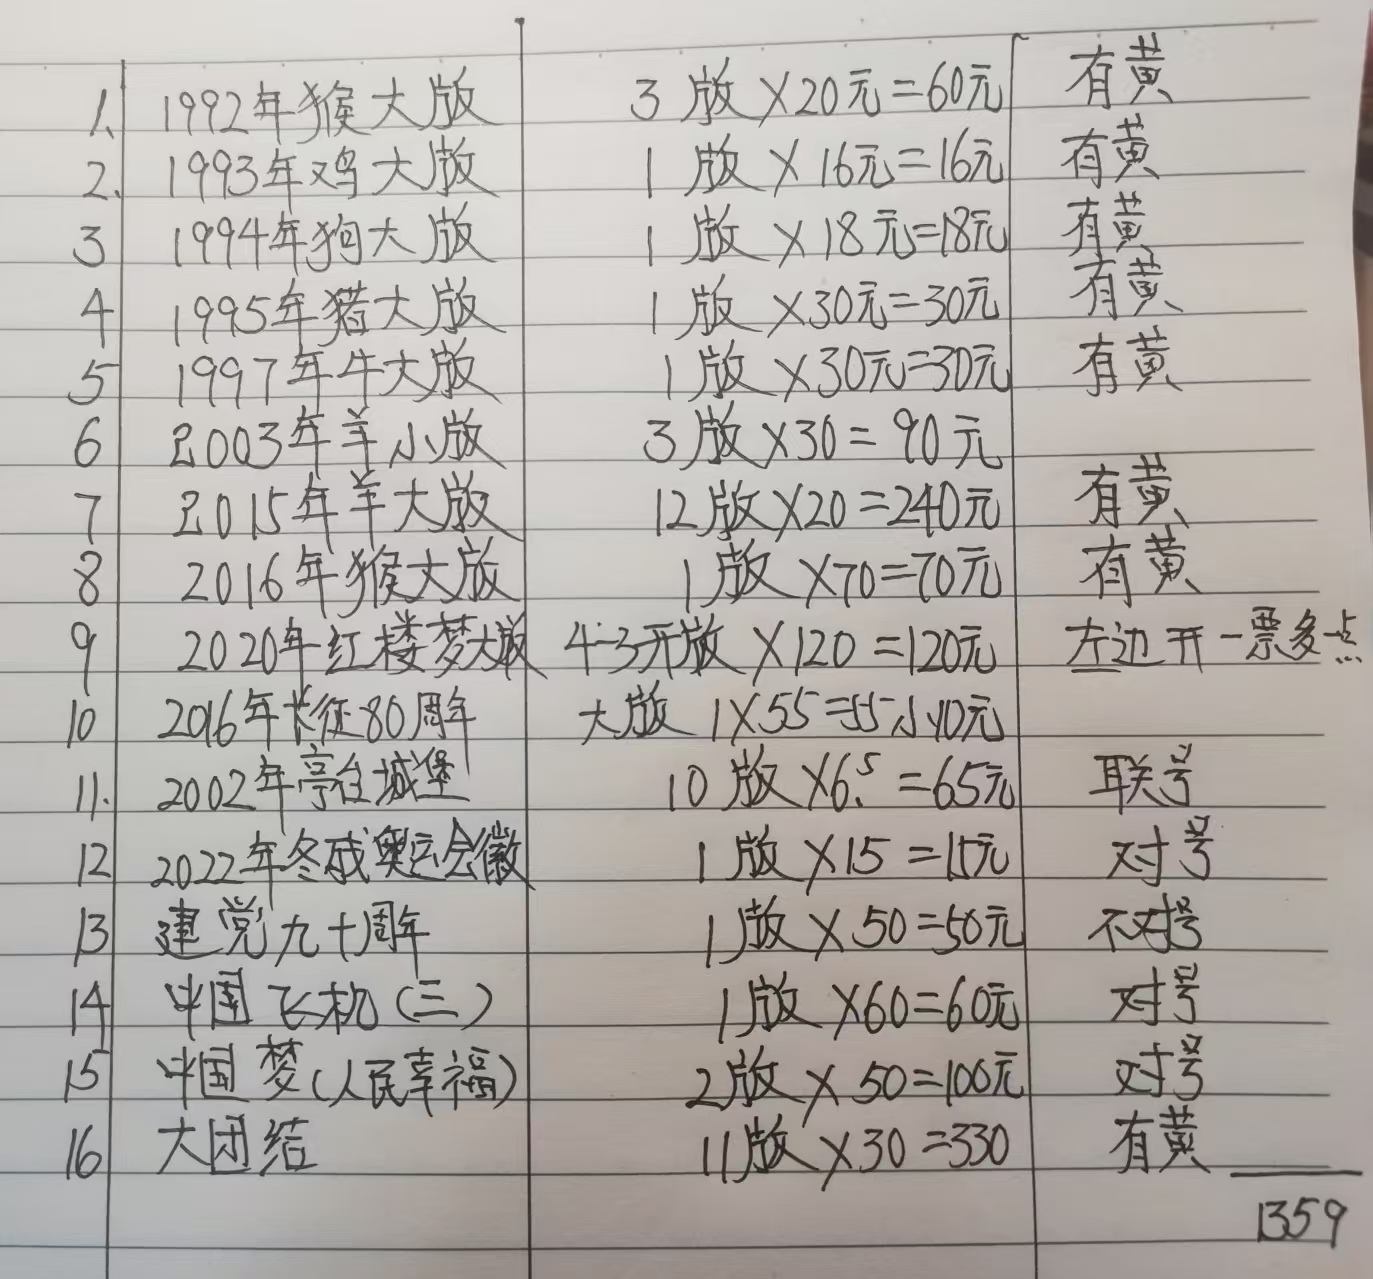 1. 1992年猴大版 3版×20元=60元 有黄
2. 1993年鸡大版 1版×16元=16元 有黄
3 1994年狗大版 1版×18元=18元 有黄
4 1995年猪大版 1版×30元=30元 有黄
5 1997年牛大版 1版×30元=30元 有黄
6 2003年羊小版 3版×30=90元
7 2015年羊大版 12版×20=240元 有黄
8 2016年猴大版 1版×70=70元 有黄
9 2020年红楼梦大版 4-3开版×120=120元 左边开一票多一点
10 2016年长征80周年 大版1×55=55小10元
11. 2002年亭台城堡 10版×6.5=65元 联号
12 2022年冬残奥运会徽 1版×15=15元 对号
13 建党九十周年 1版×50=50元 不对号
14 中国飞机(三) 1版×60=60元 对号
15 中国梦(人民幸福) 2版×50=100元 对号
16 大团结 11版×30=330 有黄
1359